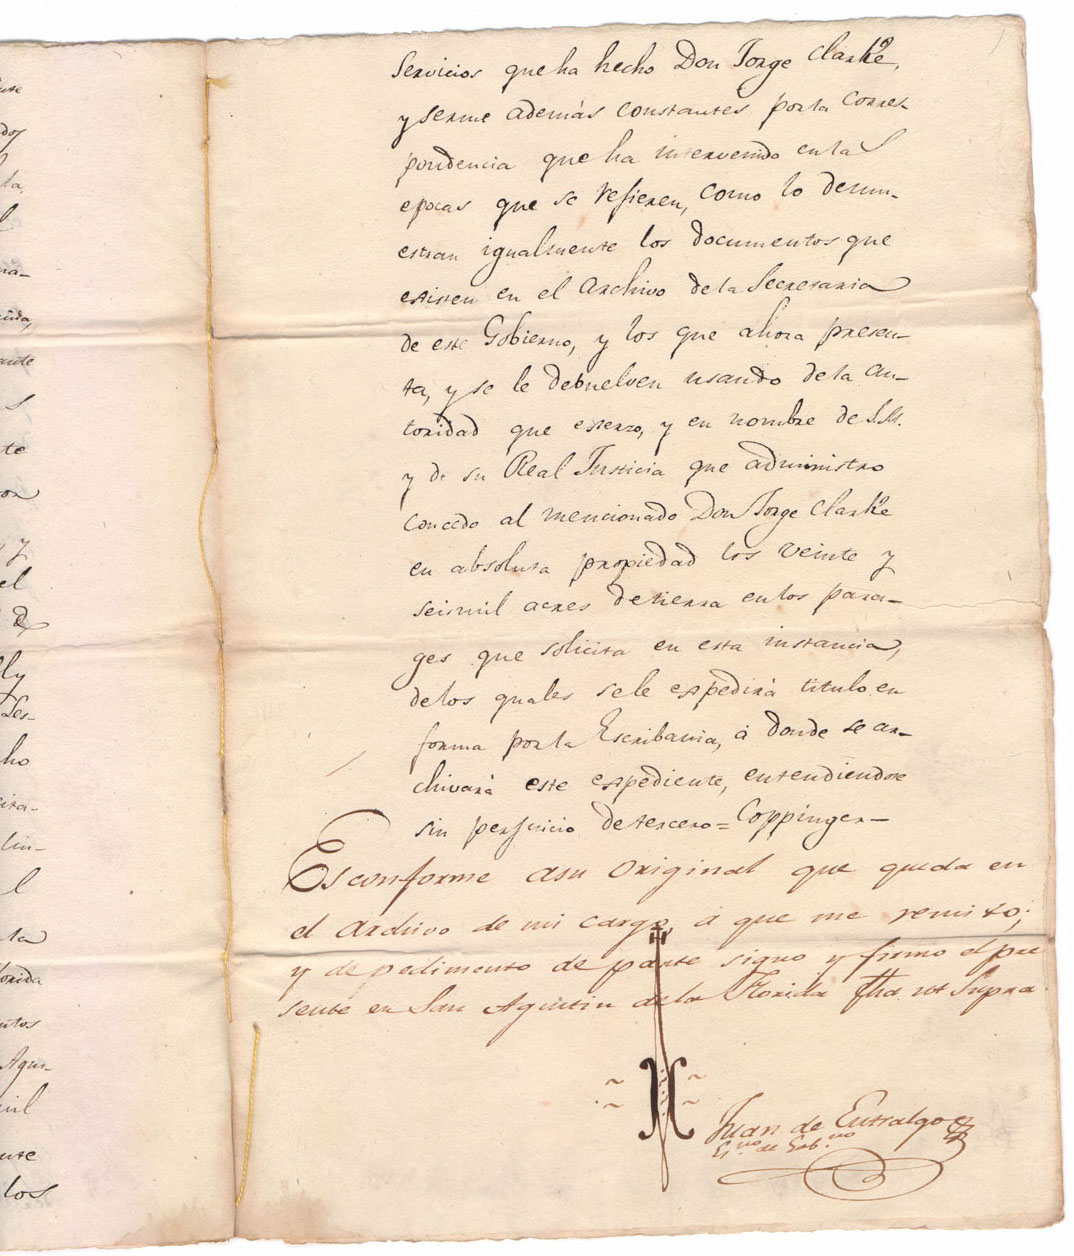 Servicios que ha hecho Don Jorge Clarke,
y serme además constantes por la corres-
pondencia que ha intervenido en las
epocas que se refieren, como lo demu-
estran igualmente los documentos que
existen en el Archivo de la Secretaria
de este Gobierno, y los que ahora presen-
ta, y se le debuelven usando de la au-
toridad que exerzo, y en nombre de S.M.
y de su Real Justicia que administro
concedo al mencionado Don Jorge Clarke
en absoluta propiedad los veinte y
seis mil acres de tierra en los para-
ges que solicita en esta instancia,
de los quales se le expedirá titulo en
forma por la Escribania, á donde se ar-
chivará este expediente, entendiendose
sin perjuicio de tercero = Coppinger-
Es conforme a su original que queda en
el Archivo de mi cargo, á que me remito;
y de pedimento de parte signo y firmo el pre
sente en San Agustin de la Florida fha ut supra
Juan de Entralgo
Es.no de Gob.no
ante
la
ante
te
y
el
de
Les-
cho
l
la
lorida
Agus-
mil
los